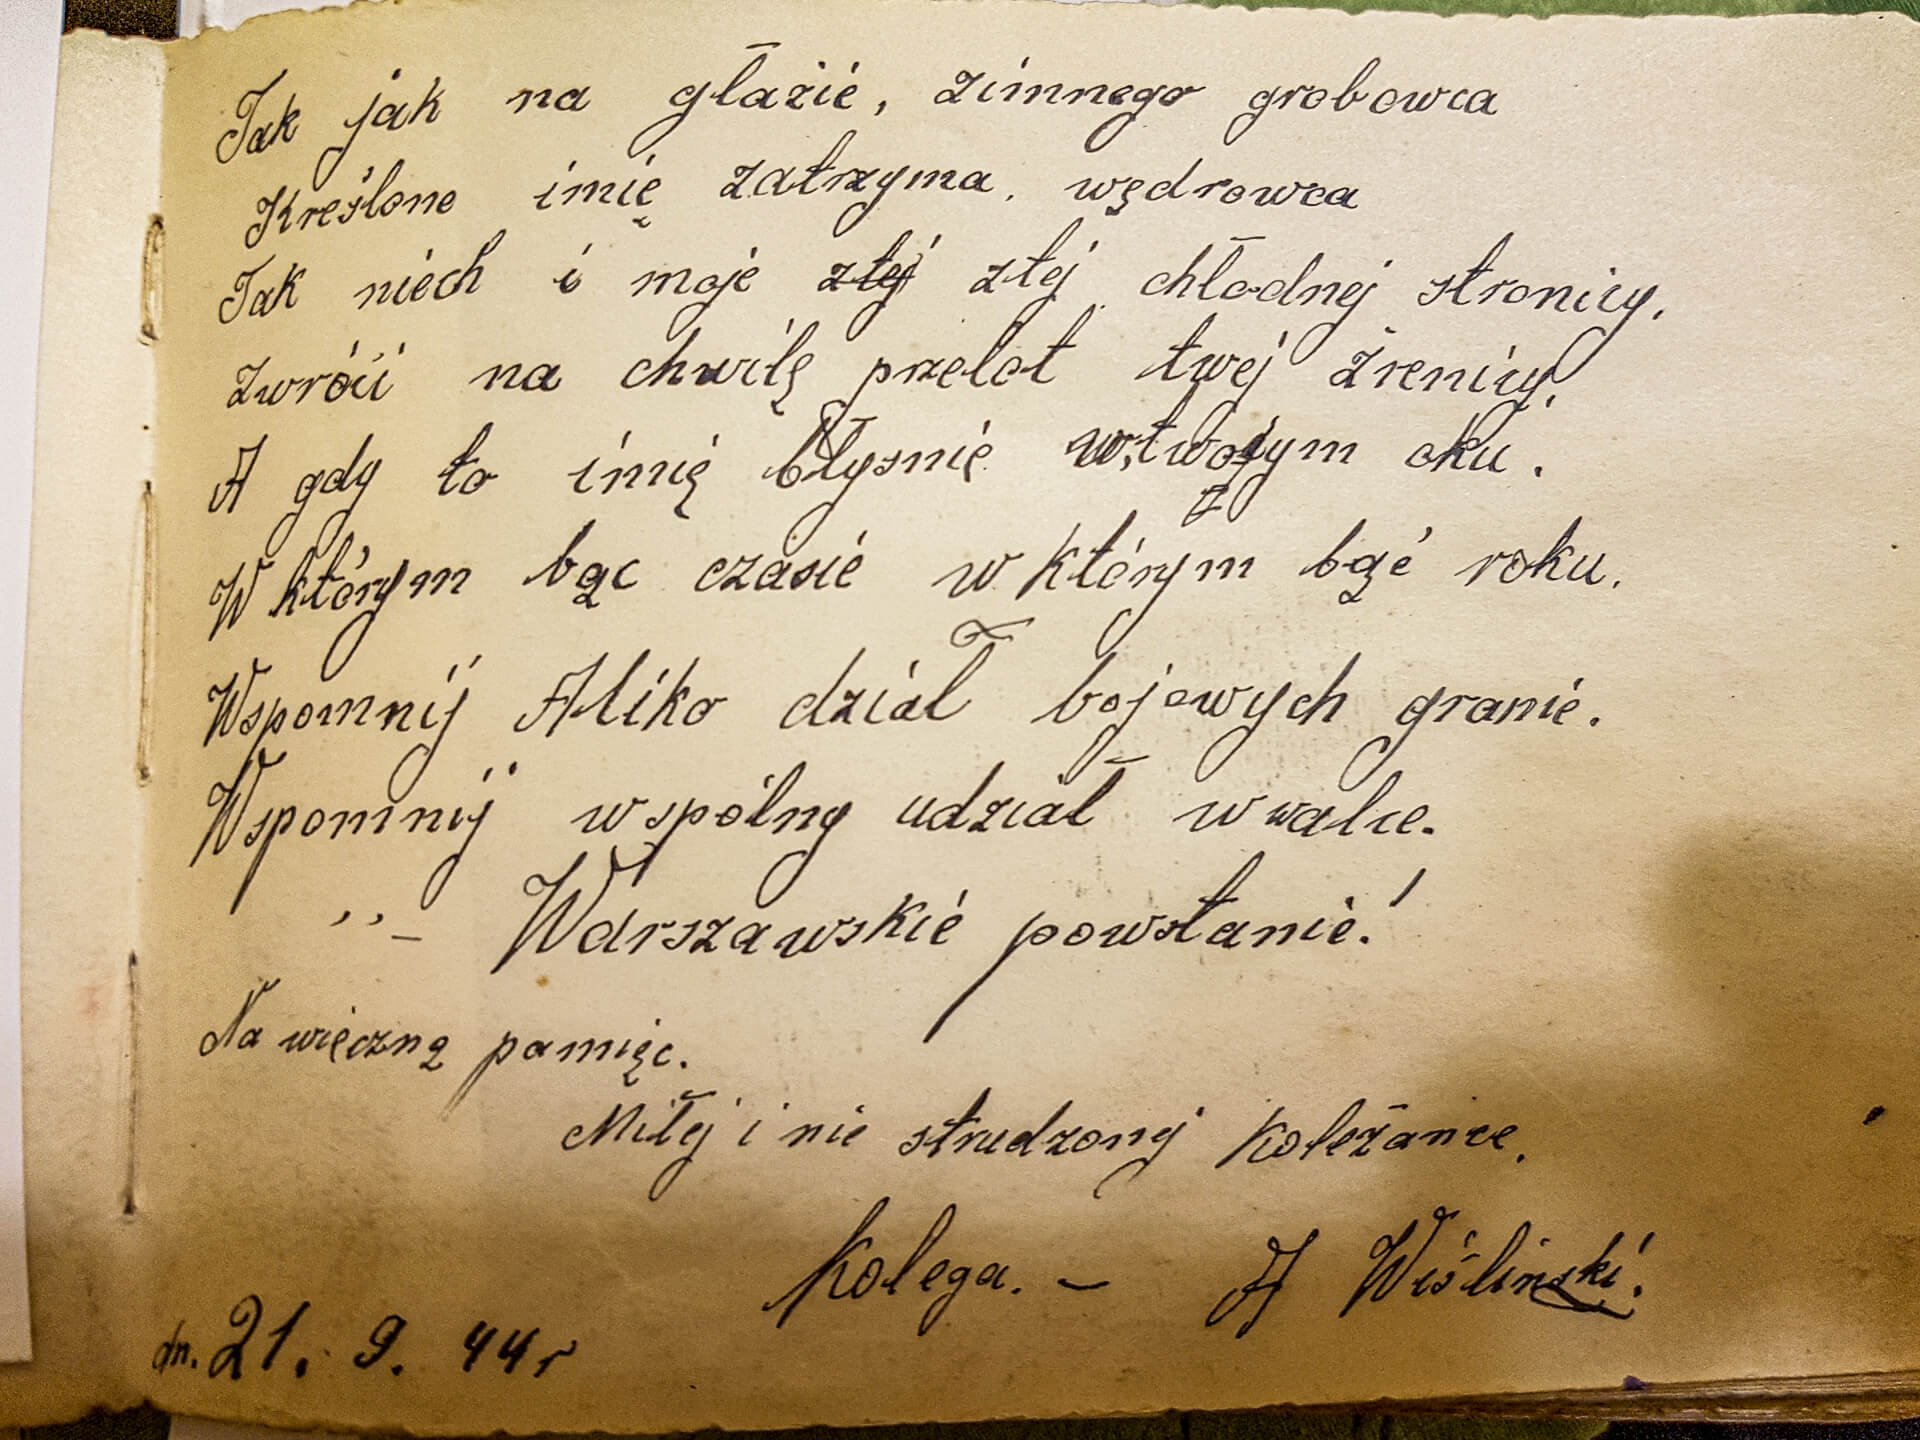 Tak jak na głazie, zimnego grobowca
Kreślone imię zatrzyma. wędrowca
Tak niech i moje złej złej chłodnej stronicy.
Zwróci na chwilę przelot twej źrenicy.
A gdy to imię błysnie w twoiym oku.
W którym bąc czasie w którym bąć roku.
Wspomnij Aliko dział bojowych granie.
Wspomnij wspólny udział w walce.
,, — Warszawskie powstanie!
Na wieczną pamięc.
Miłej i nie strudzonej Koleżance.
Kolega. — A Wiśliński.
dn. 21. 9. 44 r